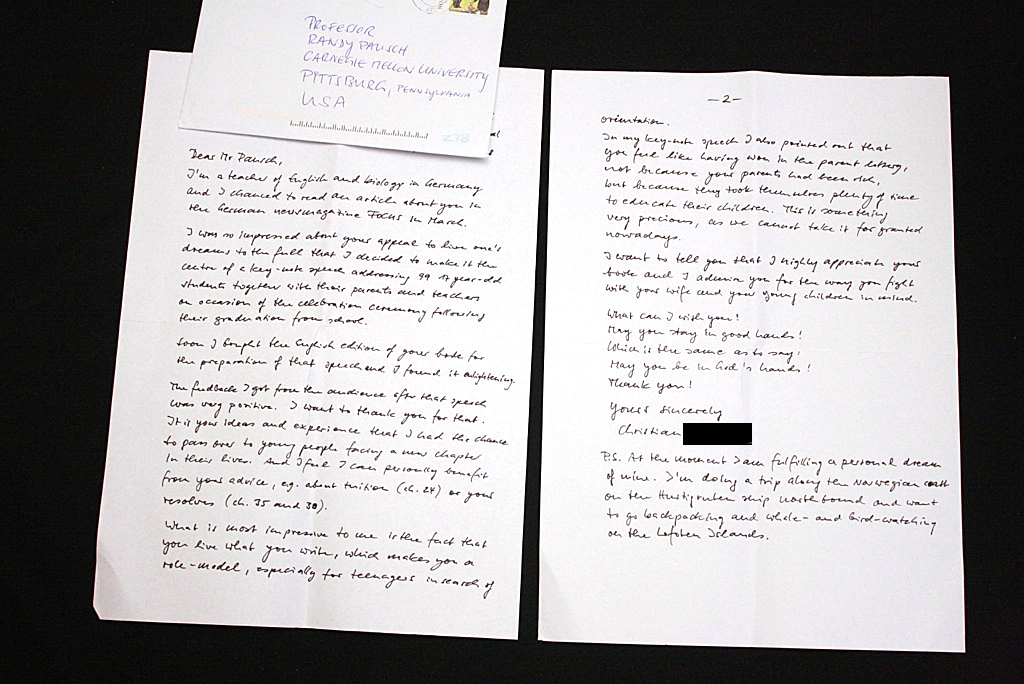 PROFESSOR
RANDY PAUSCH
CARNEGIE MELLON UNIVERSITY
PITTSBURG, PENNSYLVANIA
USA
278
Dear Mr Pausch,
I'm a teacher of English and biology in Germany
and I chanced to read an article about you in
the German newsmagazine Focus in March.
I was so impressed about your appeal to live one's
dreams to the full that I decided to make it the
centre of a key-note speech addressing 99 17 year-old
students together with their parents and teachers
on occasion of the celebration ceremony following
their graduation from school.
Soon I bought the English edition of your book for
the preparation of that speech and I found it enlightening.
The feedback I got from the audience after that speech
was very positive. I want to thank you for that.
It is your ideas and experience that I had the chance
to pass over to young people facing a new chapter
in their lives. And I feel I can personally benefit
from your advice, eg. about tuition (ch. 24) or your
resolves (ch. 35 and 30).
What is most impressive to me is the fact that
you live what you write, which makes you a
role-model, especially for teenagers in search of
—2—
orientation.
In my key-note speech I also pointed out that
you feel like having won in the parent lottery,
not because your parents had been rich,
but because they took themselves plenty of time
to educate their children. This is something
very precious, as we cannot take it for granted
nowadays.
I want to tell you that I highly appreciate your
book and I admire you for the way you fight
with your wife and your young children in mind.
What can I wish you?
May you stay in good hands!
Which is the same as to say:
May you be in God's hands!
Thank you!
Yours sincerely
Christian
P.S. At the moment I am fulfilling a personal dream
of mine. I'm doing a trip along the Norwegian coast
on the Hurtigruten ship northbound and want
to go backpacking and whale- and bird-watching
on the Lofoten Islands.